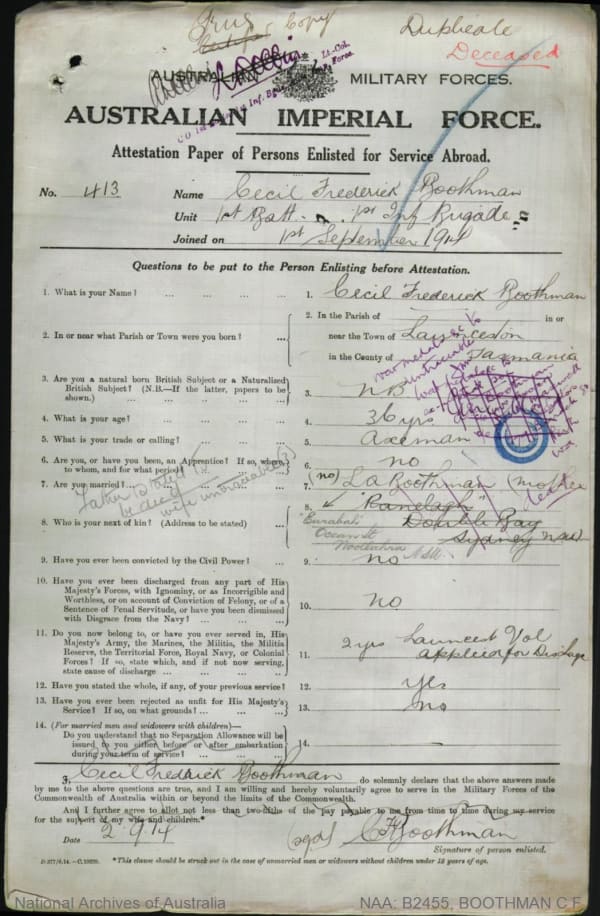 True Copy
Duplicate
Deceased
AUSTRALIAN MILITARY FORCES.
Lt.-Col.
AUSTRALIAN IMPERIAL FORCE.
Attestation Paper of Persons Enlisted for Service Abroad.
No. 413 Name Cecil Frederick Boothman
Unit 1st Batt. 1st Inf Brigade
Joined on 1st September 1914
Questions to be put to the Person Enlisting before Attestation.
1. What is your Name? ... 1. Cecil Frederick Boothman
2. In or near what Parish or Town were you born? ... 2. In the Parish of in or
near the Town of Launceston
in the County of Tasmania
3. Are you a natural born British Subject or a Naturalized
British Subject? (N.B.—If the latter, papers to be
shown.) ... 3. NB
4. What is your age? ... 4. 36 yrs
5. What is your trade or calling? ... 5. Axeman
6. Are you, or have you been, an Apprentice? If so, where,
to whom, and for what period? 6. no
7. Are you married? ... 7. (no) L A Boothman (mother
Father stated to
be dead
wife untraceable
8. Who is your next of kin? (Address to be stated) ... 8. "Ranelagh"
Double Bay
Sydney NSW
Ocean St
Woollahra NSW
9. Have you ever been convicted by the Civil Power? ... 9. no
10. Have you ever been discharged from any part of His
Majesty's Forces, with Ignominy, or as Incorrigible and
Worthless, or on account of Conviction of Felony, or of a
Sentence of Penal Servitude, or have you been dismissed
with Disgrace from the Navy? ... 10. no
11. Do you now belong to, or have you ever served in, His
Majesty's Army, the Marines, the Militia, the Militia
Reserve, the Territorial Force, Royal Navy, or Colonial
Forces? If so, state which, and if not now serving,
state cause of discharge ... 11. 2 yrs Launcest Vol
applied for Discharge
12. Have you stated the whole, if any, of your previous service? 12. Yes
13. Have you ever been rejected as unfit for His Majesty's
Service? If so, on what grounds? ... 13. No
14. (For married men and widowers with children)—
Do you understand that no Separation Allowance will be
issued to you either before or after embarkation
during your term of service? ... 14. —
I, Cecil Frederick Boothman do solemnly declare that the above answers made
by me to the above questions are true, and I am willing and hereby voluntarily agree to serve in the Military Forces of the
Commonwealth of Australia within or beyond the limits of the Commonwealth.
And I further agree to allot not less than two-fifths of the pay payable to me from time to time during my service
for the support of my wife and children.*
Date 2.9.14 (sgd) C F Boothman
Signature of person enlisted.
*This clause should be struck out in the case of unmarried men or widowers without children under 18 years of age.
National Archives of Australia NAA: B2455, BOOTHMAN C F